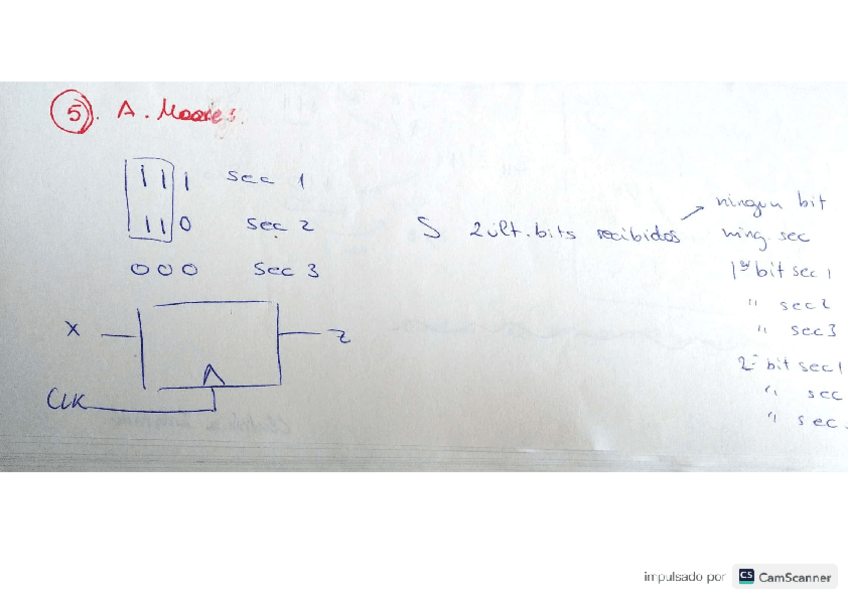 5). A. Moore
111 sec 1
110 sec 2
000 sec 3
S 2 últ. bits recibidos
ningun bit
ning. sec
1er bit sec 1
" sec 2
" sec 3
2º bit sec 1
" sec
" sec.
X
Z
CLK
impulsado por CS CamScanner